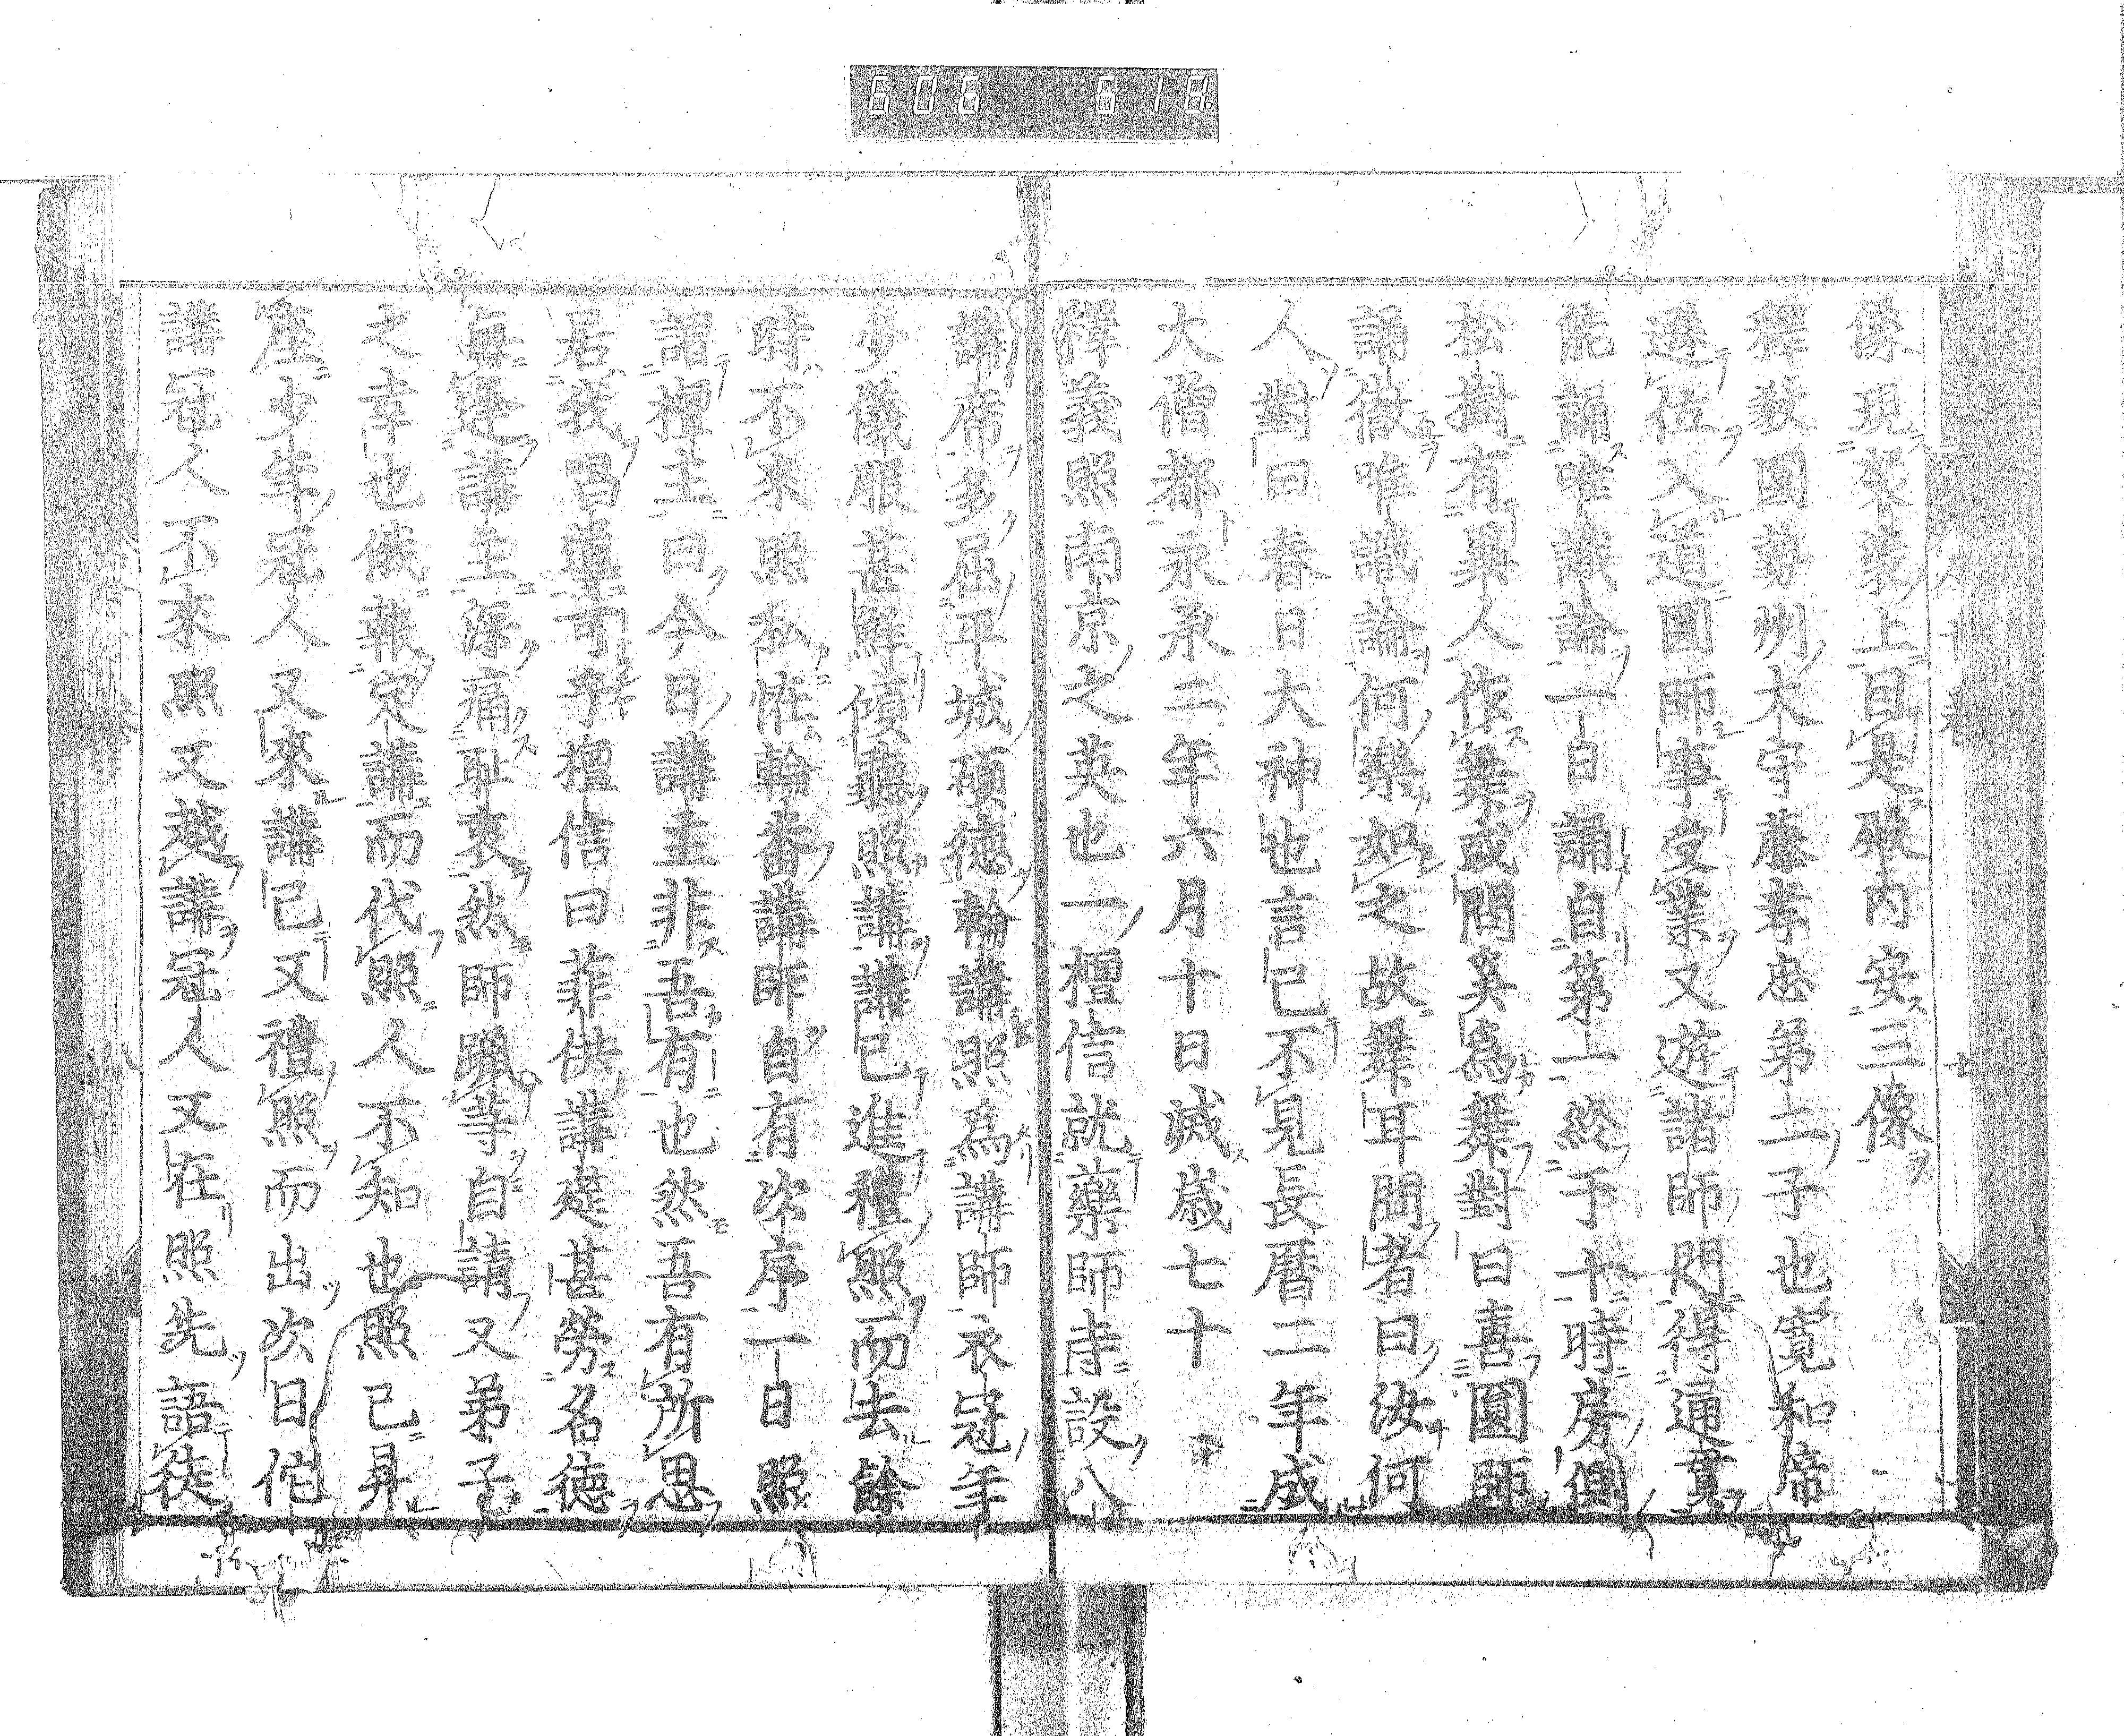 606 618
像現袈裟上曰是殿内安三像
釋敎圓勢州大守藤孝忠第二子也寛和帝
遜位入道圓師事受業又遊諸師門得通貫
能誦唯識論一日誦自第一終于十時房側
松樹有異人作舞或問奚爲舞對曰喜圓師
誦徹唯識論何樂如之故舞耳問者曰汝何
人對曰春日大神也言已不見長暦二年成
大僧都永承二年六月十日滅歳七十
釋義照南京之英也一檀信就藥師寺設八
講席多屈平城碩德輪講照爲講師衣冠年
少儀服甚鮮傾聽照講講已進禮照而去餘
時不來照私恠輪番講師自有次序一日照
謂檀主曰今日講主非吾有也然吾有所思
居我昌筵可乎檀信曰菲供講筵甚勞名德
每逢講主深痛恥衷然師躐等自請又弟子
之幸也俄報定講而代照人不知也照已昇
座少年冠人又來講已又禮照而出次日佗
講冠人不來照又越講冠人又在照先語徒